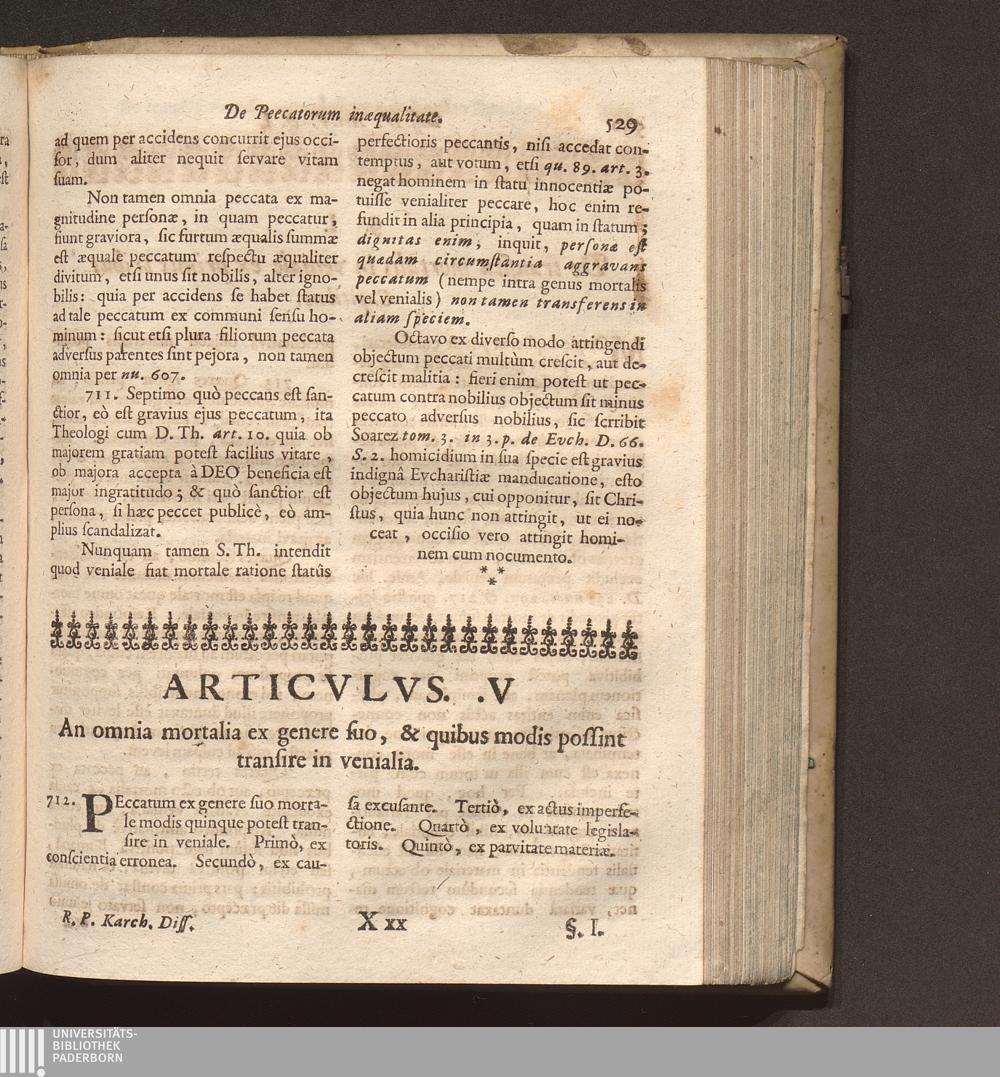 De Peecatorum inæqualitate.
529
ad quem per accidens concurrit ejus occi-
ſor, dum aliter nequit ſervare vitam
ſuam.
Non tamen omnia peccata ex ma-
gnitudine perſonæ, in quam peccatur,
fiunt graviora, ſic furtum æqualis ſummæ
eſt æquale peccatum reſpectu æqualiter
divitum, etſi unus ſit nobilis, alter igno-
bilis: quia per accidens ſe habet ſtatus
ad tale peccatum ex communi ſenſu ho-
minum: ſicut etſi plura filiorum peccata
adverſus parentes ſint pejora, non tamen
omnia per nu. 607.
711. Septimo quò peccans eſt ſan-
ctior, eò eſt gravius ejus peccatum, ita
Theologi cum D. Th. art. 10. quia ob
majorem gratiam poteſt facilius vitare,
ob majora accepta à DEO beneficia eſt
major ingratitudo; & quò ſanctior eſt
perſona, ſi hæc peccet publicè, eò am-
plius ſcandalizat.
Nunquam tamen S. Th. intendit
quod veniale fiat mortale ratione ſtatûs
perfectioris peccantis, niſi accedat con-
temptus, aut votum, etſi qu. 89. art. 3.
negat hominem in ſtatu innocentiæ po-
tuiſſe venialiter peccare, hoc enim re-
fundit in alia principia, quam in ſtatum;
dignitas enim, inquit, perſonæ eſt
quædam circumſtantia aggravans
peccatum (nempe intra genus mortalis
vel venialis) non tamen transferens in
aliam ſpeciem.
Octavo ex diverſo modo attingendi
objectum peccati multùm creſcit, aut de-
creſcit malitia: fieri enim poteſt ut pec-
catum contra nobilius objectum ſit minus
peccato adverſus nobilius, ſic ſcrribit
Soarez tom. 3. in 3. p. de Evch. D. 66.
S. 2. homicidium in ſua ſpecie eſt gravius
indignâ Evchariſtiæ manducatione, eſto
objectum hujus, cui opponitur, ſit Chri-
ſtus, quia hunc non attingit, ut ei no-
ceat, occiſio vero attingit homi-
nem cum nocumento.
* *
*
ARTICVLVS. .V
An omnia mortalia ex genere ſuo, & quibus modis poſſint
tranſire in venialia.
712. PEccatum ex genere ſuo morta-
le modis quinque poteſt tran-
ſire in veniale. Primò, ex
conſcientia erronea. Secundò, ex cau-
ſa excuſante. Tertiò, ex actus imperfe-
ctione. Quartò, ex voluntate legisla-
toris. Quintò, ex parvitate materiæ.
R. P. Karch. Diſſ.
X xx
§. I.
UNIVERSITÄTS-
BIBLIOTHEK
PADERBORN